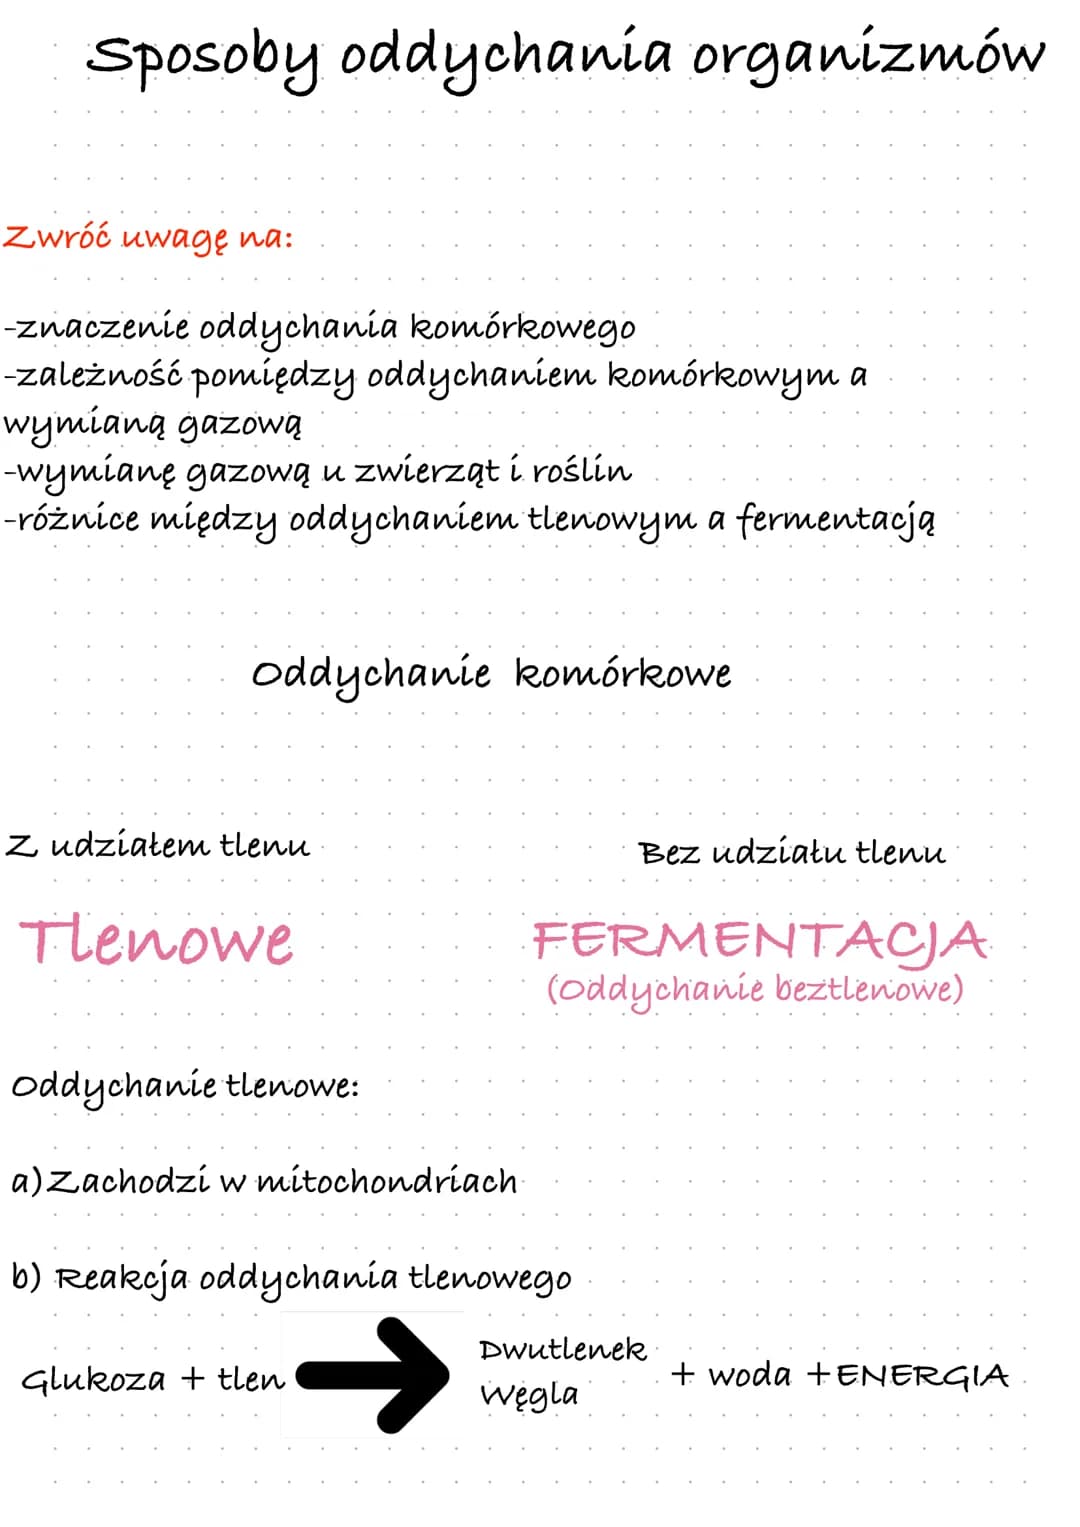 Sposoby oddychania organizmów
Zwróć uwagę na:
-znaczenie oddychania komórkowego
-zależność pomiędzy oddychaniem komórkowym a
wymianą gazową
-wymianę gazową u zwierząt i roślin
-różnice między oddychaniem tlenowym a fermentacją
Oddychanie komórkowe
Z udziałem tlenu
Bez udziału tlenu
Tlenowe
FERMENTACJA
(Oddychanie beztlenowe)
Oddychanie tlenowe:
a) Zachodzi w mitochondriach
b) Reakcja oddychania tlenowego
Glukoza + tlen
Dwutlenek
Węgla
+ woda + ENERGIA